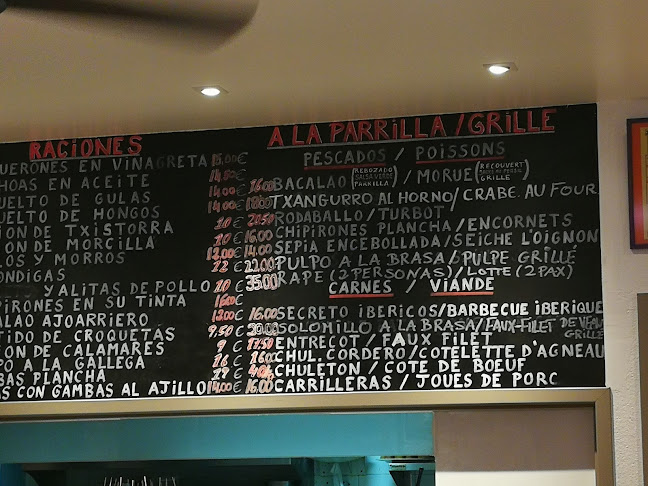 RACIONES
UERONES EN VINAGRETA 15.00€
HOAS EN ACEITE 14.50€
UELTO DE GULAS 14.00€
UELTO DE HONGOS 14.00€
ION DE TXISTORRA 10€
ION DE MORCILLA 10€
LOS Y MORROS 12.00€
ONDIGAS 12€
Y ALITAS DE POLLO 10€
PIRONES EN SU TINTA 16.00€
ALAO AJOARRIERO 18.00€
TIDO DE CROQUETAS 9,50€
ION DE CALAMARES 9€
PO A LA GALLEGA 16€
BAS PLANCHA 21€
AS CON GAMBAS AL AJILLO 14.00€
A LA PARRILLA / GRILLE
PESCADOS / POISSONS
16.00 BACALAO (REBOZADO SALSA VERDE PARRILLA) / MORUE (RECOUVERT GRILLE)
18.00 TXANGURRO AL HORNO / CRABE. AU FOUR
20.50 RODABALLO / TURBOT
16.00 CHIPIRONES PLANCHA / ENCORNETS
14.00 SEPIA ENCEBOLLADA / SEICHE L'OIGNON
22.00 PULPO A LA BRASA / PULPE GRILLÉ
35.00 RAPE (2 PERSONAS) / LOTTE (2 PAX)
CARNES / VIANDE
16.00 SECRETO IBERICOS / BARBECUE IBERIQUE
20.00 SOLOMILLO A LA BRASA / FAUX-FILET DE VEAU GRILLE
17.50 ENTRECOT / FAUX FILET
16.00 CHUL. CORDERO / COTELETTE D'AGNEAU
CHULETON / COTE DE BOEUF
16.00 CARRILLERAS / JOUES DE PORC